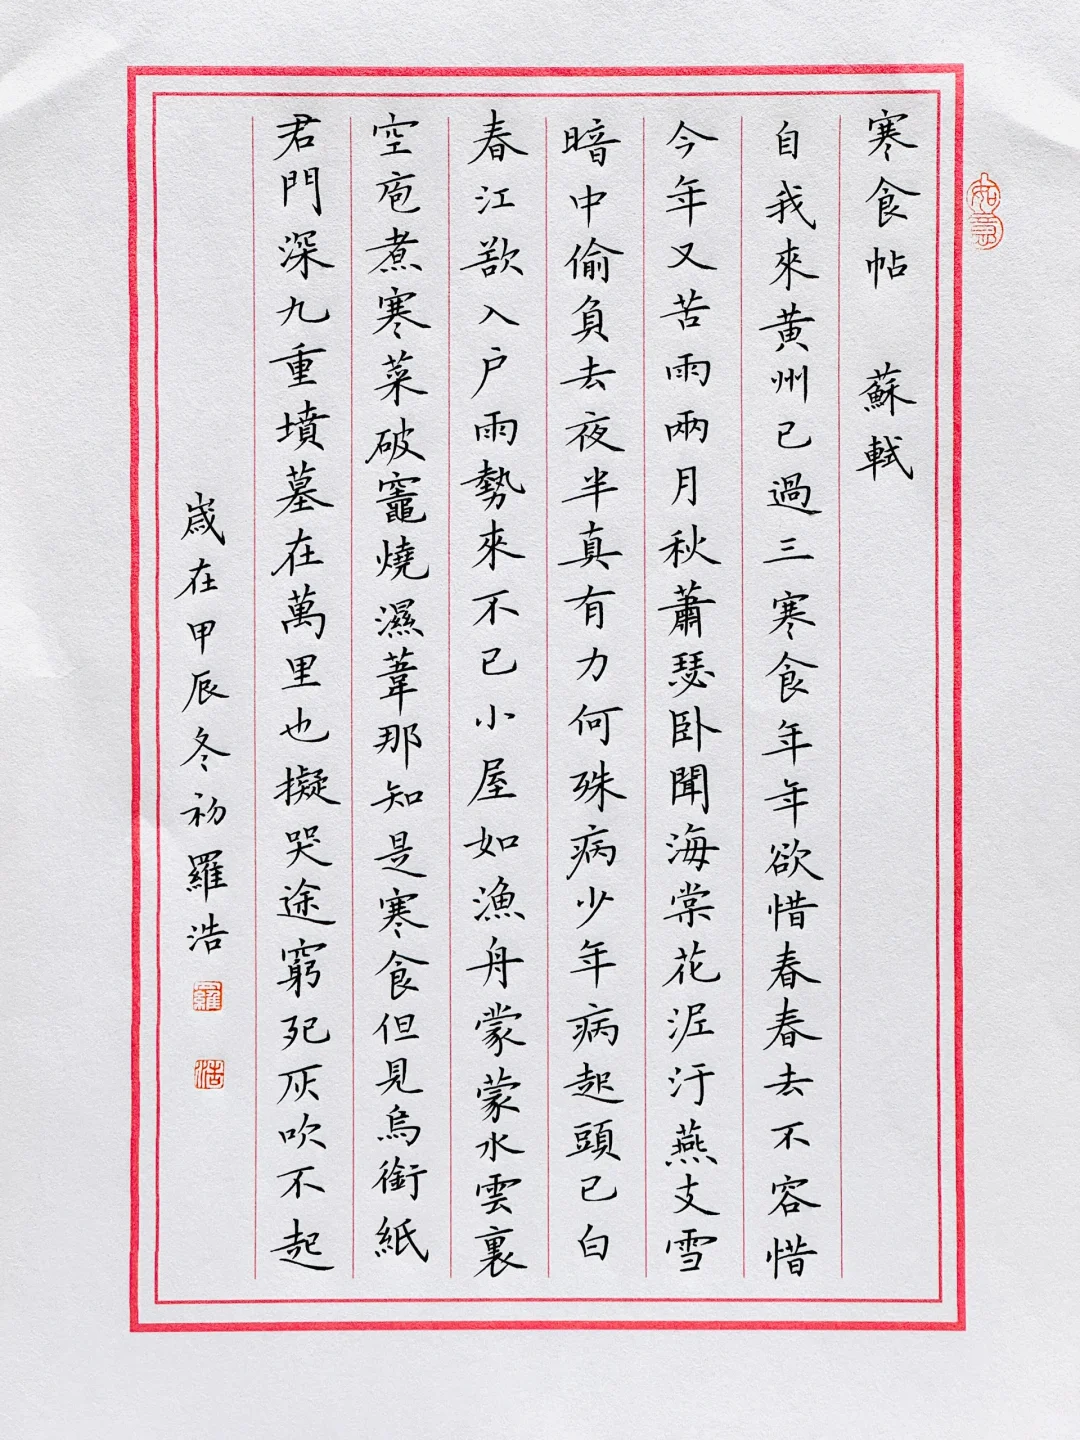 寒食帖 蘇軾
自我來黃州已過三寒食年年欲惜春春去不容惜
今年又苦雨兩月秋蕭瑟臥聞海棠花泥汙燕支雪
暗中偷負去夜半真有力何殊病少年病起頭已白
春江欲入戶雨勢來不已小屋如漁舟蒙蒙水雲裏
空庖煮寒菜破竈燒濕葦那知是寒食但見烏銜紙
君門深九重墳墓在萬里也擬哭途窮死灰吹不起
歲在甲辰冬初羅浩
羅
浩
如意